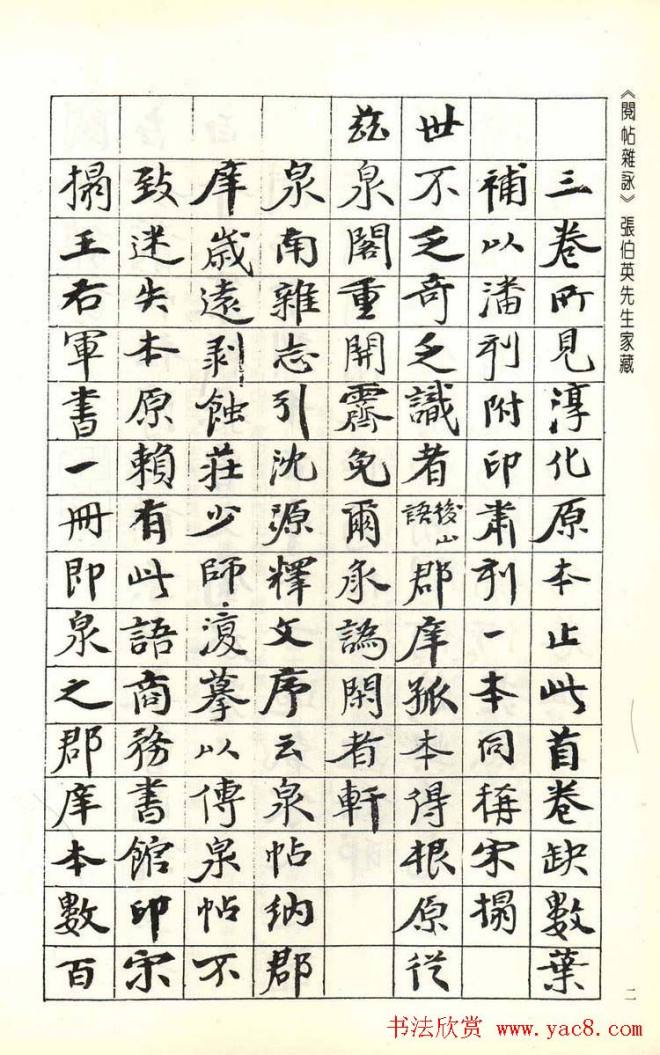 《閱帖雜詠》張伯英先生家藏
三卷所見淳化原本止此首卷缺數葉
補以潘刻附印肅刻一本同稱宋搨
世不乏奇乏識者後山語郡庠孤本得根原從
茲泉閣重開霽免爾承譌閑者軒
泉南雜志引沈源釋文序云泉帖納郡
庠歲遠剥蝕莊少師復摹以傳泉帖不
致迷失本原賴有此語商務書館印宋
搨王右軍書一冊即泉之郡庠本數百
二
书法欣赏 www.yac8.com